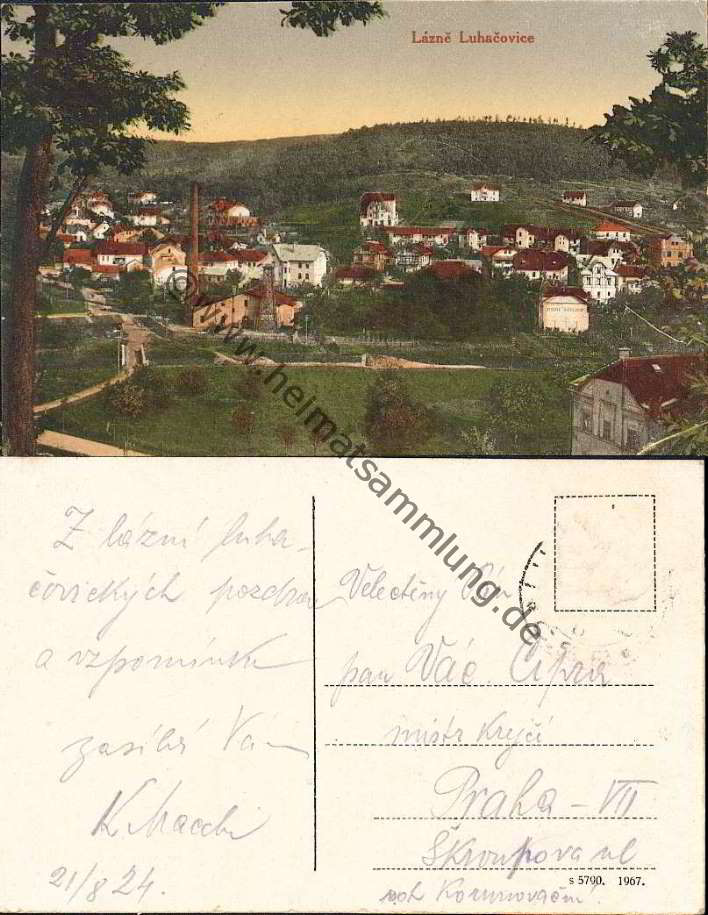 Lázně Luhačovice
© www.heimatsammlung.de
Z lázní luha-
čovických pozdrav
a vzpomínku
zasílá Vám
K.
21/8 24.
Velectěný Pán
pan Vác. Cipra
mistr krejčí
Praha – VII
Škroupova ul
roh
s 5790. 1967.